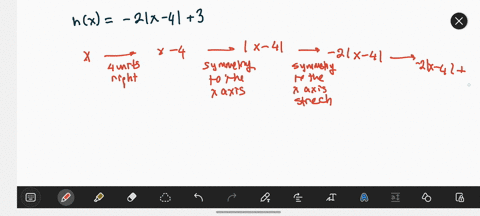 h(x) = -2|x-4| +3
x → x-4 → |x-4| → -2|x-4| → -2|x-4| +
4 units right
symmetry to the x axis
symmetry to the x axis strech